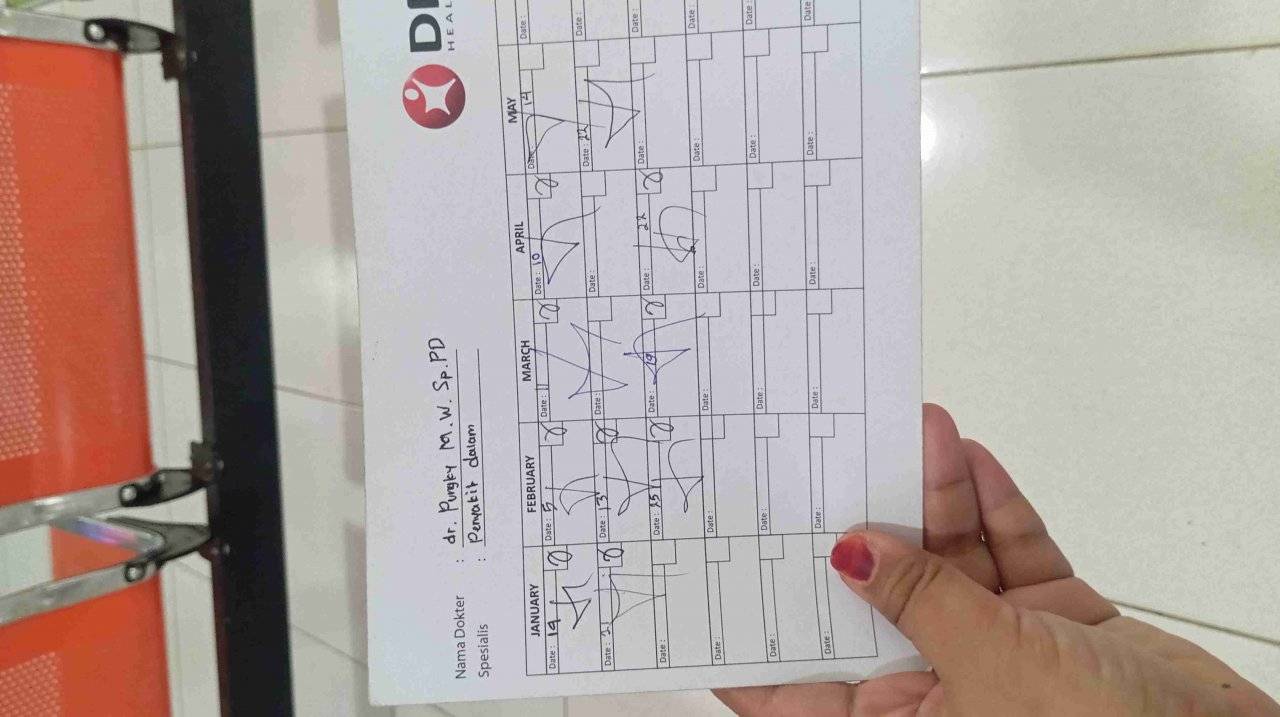 DE
HEAL
Nama Dokter : dr. Pungky M.W. Sp.PD
Spesialis : Penyakit dalam
JANUARY FEBRUARY MARCH APRIL MAY
Date : 14 Date : 5 Date : 11 Date : 10 Date : 14 Date :
21 Date : 13 Date : Date : Date : 22 Date :
Date : Date : 25 Date : 19 Date : 22 Date : Date :
Date : Date : Date : Date : Date : Date :
Date : Date : Date : Date : Date : Date :
Date : Date : Date : Date : Date : Date :